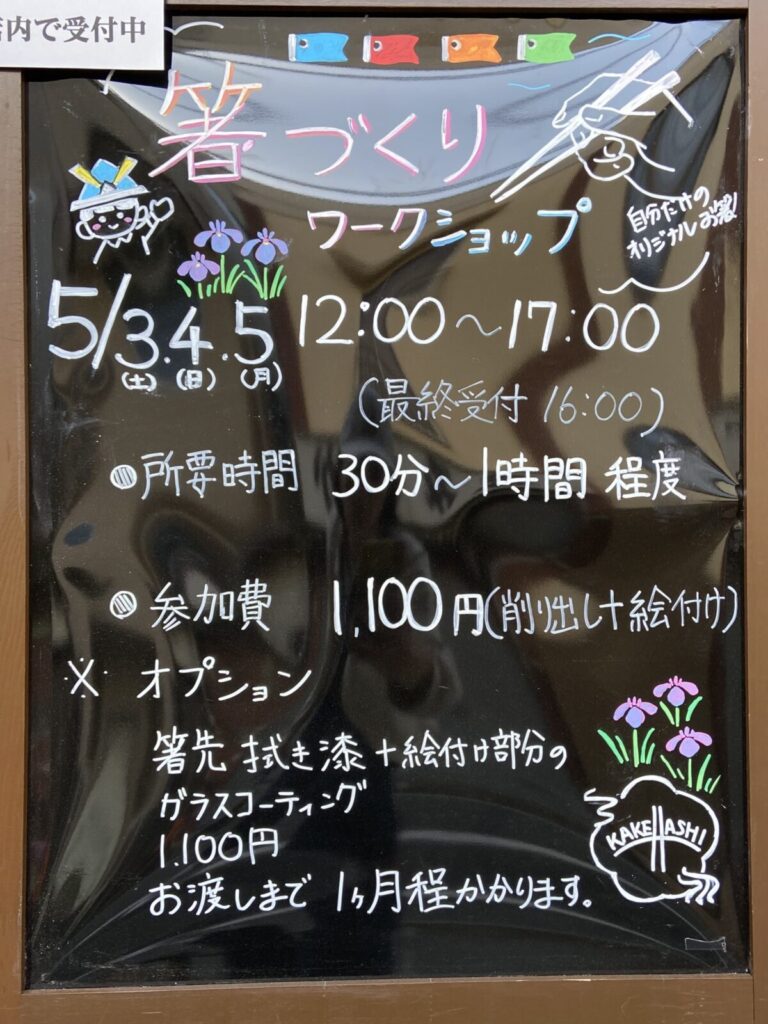 店内で受付中
箸づくり
ワークショップ
自分だけの
オリジナルお箸!
5/3.4.5 12:00~17:00
(土)(日)(月)
(最終受付 16:00)
所要時間 30分~1時間 程度
参加費 1,100円(削り出し+絵付け)
※ オプション
箸先 拭き漆+絵付け部分の
ガラスコーティング
1.100円
お渡しまで 1ヶ月程かかります。
KAKEHASHI